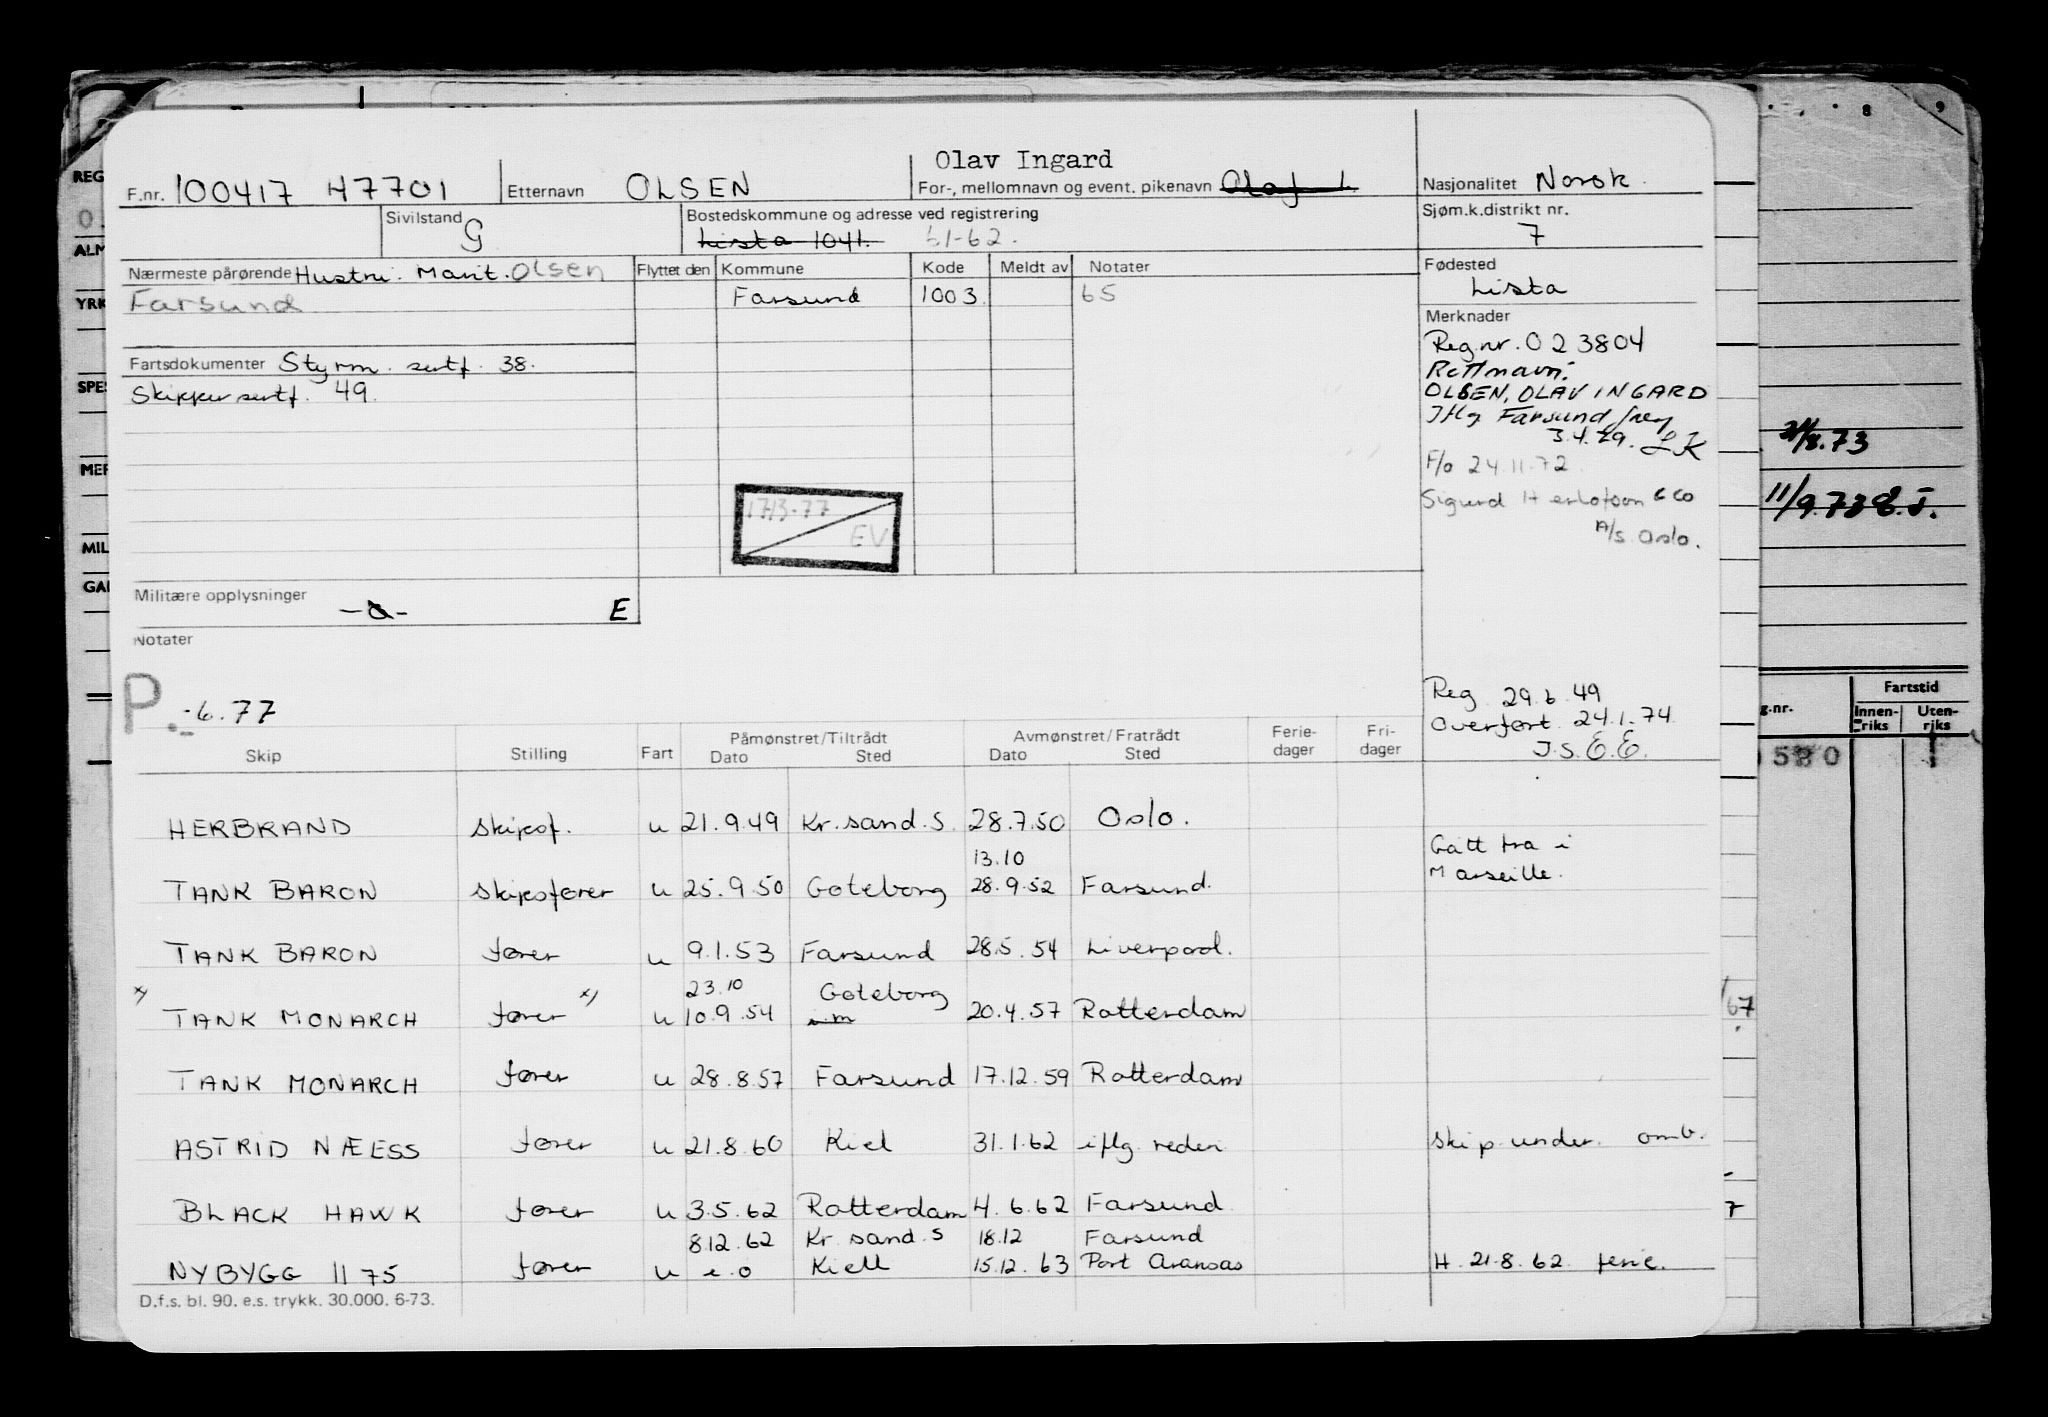 Olav Ingard
F.nr. 100417 47701 Etternavn OLSEN For-, mellomnavn og event. pikenavn Olaf I. Nasjonalitet Norsk.
Sivilstand G Bostedskommune og adresse ved registrering Sjøm.k.distrikt nr.
Lista 1041. 61-62. 7
Nærmeste pårørende Hustru. Marit. Olsen Flyttet den Kommune Kode Meldt av Notater Fødested
Farsund Farsund 1003 65 Lista
Merknader
Fartsdokumenter Styrm. sertf. 38. Reg.nr. 023804
Skippersertf. 49. Rett navn:
OLSEN, OLAV INGARD
Iflg. Farsund
3.4.79. LK
F/o 24.11.72.
Sigurd Herlofson & Co
A/s. Oslo.
17/3-77
EV
Militære opplysninger E
Notater
P. -6.77
Reg 29.6.49
Overført 24.1.74
I.S. E.E.
Skip Stilling Fart Påmønstret/Tiltrådt Dato Sted Avmønstret/Fratrådt Dato Sted Ferie-dager Fri-dager
HERBRAND skipsf. u 21.9.49 Kr.sand.S. 28.7.50 Oslo.
13.10 Gått fra i
TANK BARON skipsfører u 25.9.50 Goteborg 28.9.52 Farsund. Marseille.
TANK BARON fører u 9.1.53 Farsund 28.5.54 Liverpool.
23.10 Goteborg
x) TANK MONARCH fører x) u 10.9.54 20.4.57 Rotterdam
TANK MONARCH fører u 28.8.57 Farsund 17.12.59 Rotterdam
ASTRID NÆESS fører u 21.8.60 Kiel 31.1.62 iflg. rederi skip under. omb.
BLACK HAWK fører u 3.5.62 Rotterdam 4.6.62 Farsund
8.12.62 Kr.sand.S 18.12 Farsund
NYBYGG 1175 fører u e.o Kiell 15.12.63 Port Aransas H. 21.8.62 ferie.
D.f.s. bl. 90. e.s. trykk. 30.000. 6-73.
REG
ALM
YRK
SPES
MER
MIL
GAI
8 9
/8.73
11/9.73
Fartstid
g.nr. Innen-riks Uten-riks
580
67
7